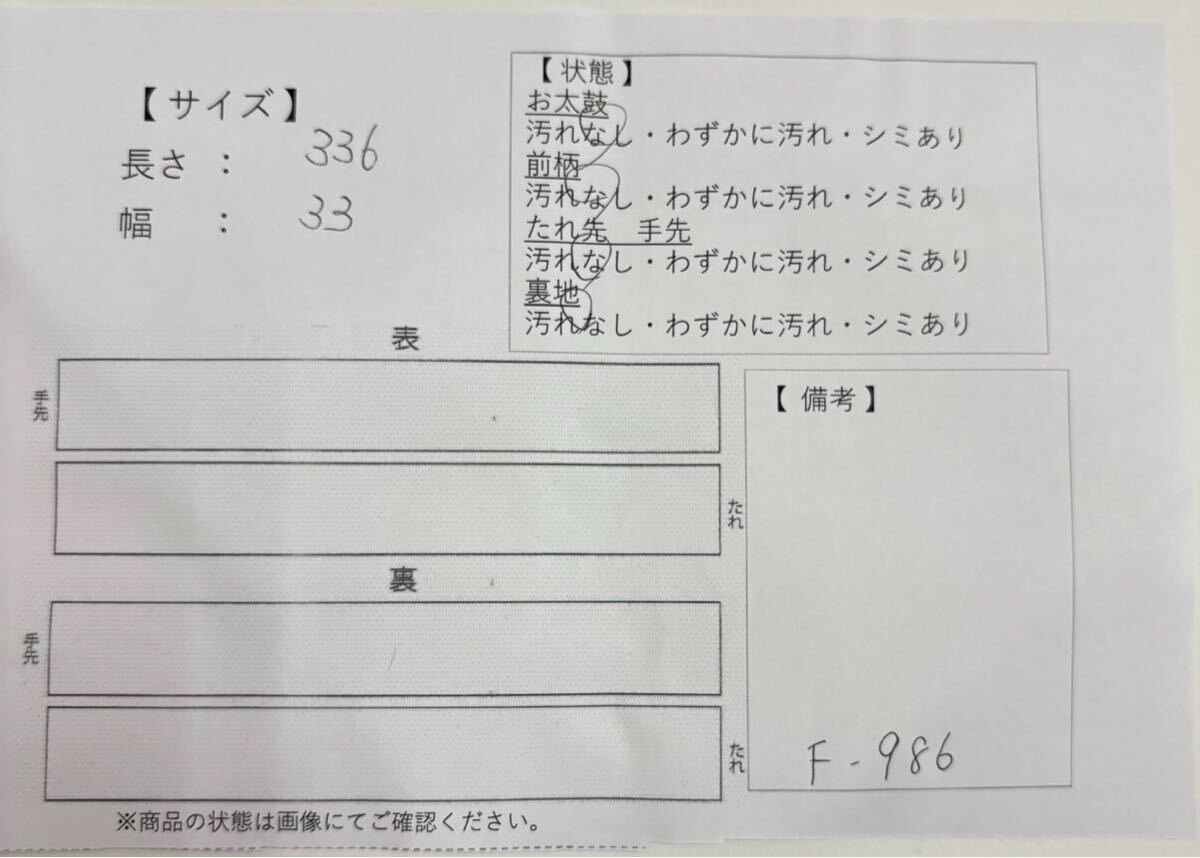 【 サイズ 】
長さ ： 336
幅 ： 33
【 状態 】
お太鼓
汚れなし・わずかに汚れ・シミあり
前柄
汚れなし・わずかに汚れ・シミあり
たれ先 手先
汚れなし・わずかに汚れ・シミあり
裏地
汚れなし・わずかに汚れ・シミあり
表
手先
たれ
裏
手先
たれ
【 備考 】
F-986
※商品の状態は画像にてご確認ください。